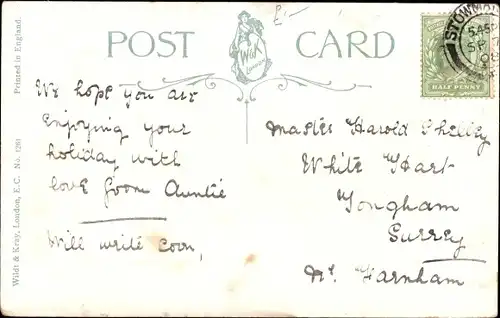 POST CARD
W&K
LONDON
HALF PENNY
We hope you are
Enjoying your
holiday with
love from Auntie
Will write soon,
Master Harold Shelley
White Hart
Tongham
Surrey
Nr. Farnham
Wildt & Kray, London, E.C. No. 1261
Printed in England.